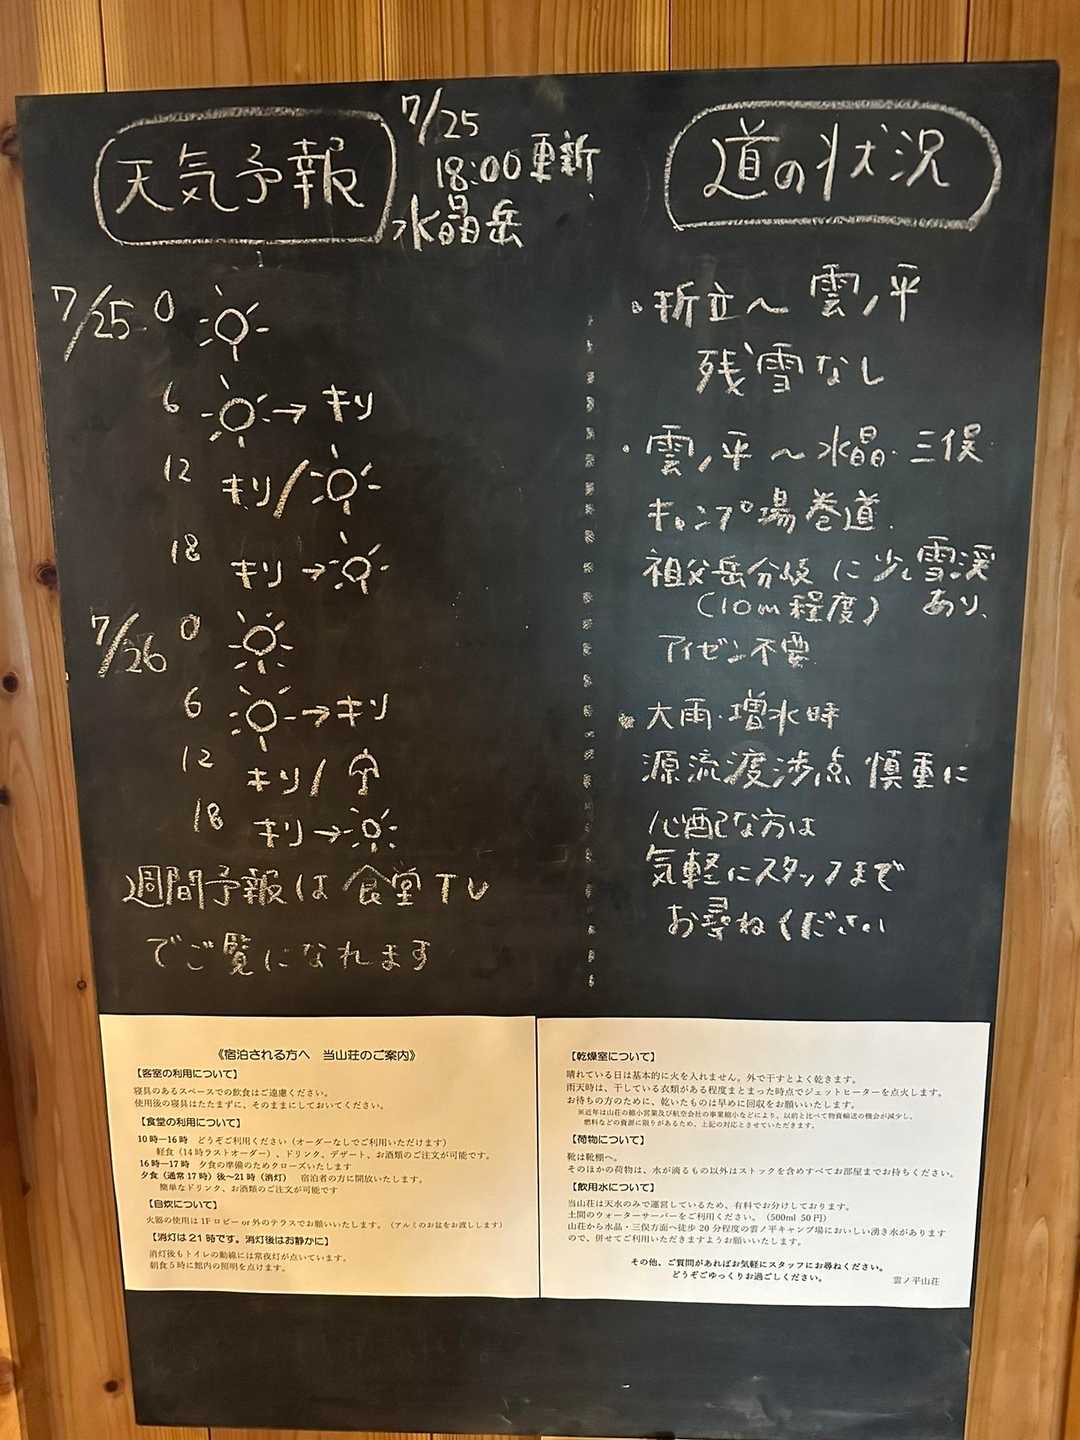 天気予報
7/25
18:00更新
水晶岳
7/25 0
6 → キリ
12 キリ/
18 キリ→
7/26 0
6 →キリ
12 キリ/
18 キリ→
週間予報は食堂TV
でご覧になれます
道の状況
・折立～雲ノ平
残雪なし
・雲ノ平～水晶・三俣
キャンプ場巻道
祖父岳分岐に少し雪渓
(10m程度) あり、
アイゼン不要
・大雨・増水時
源流渡渉点 慎重に
心配な方は
気軽にスタッフまで
お尋ねください
《宿泊される方へ 当山荘のご案内》
【客室の利用について】
寝具のあるスペースでの飲食はご遠慮ください。
使用後の寝具はたたまずに、そのままにしておいてください。
【食堂の利用について】
10時―16時 どうぞご利用ください（オーダーなしでご利用いただけます）
軽食（14時ラストオーダー）、ドリンク、デザート、お酒類のご注文が可能です。
16時―17時 夕食の準備のためクローズいたします
夕食（通常17時）後～21時（消灯） 宿泊者の方に開放いたします。
簡単なドリンク、お酒類のご注文が可能です
【自炊について】
火器の使用は1Fロビーor外のテラスでお願いいたします。（アルミのお盆をお渡しします）
【消灯は21時です。消灯後はお静かに】
消灯後もトイレの動線には常夜灯が点いています。
朝食5時に館内の照明を点けます。
【乾燥室について】
晴れている日は基本的に火を入れません。外で干すとよく乾きます。
雨天時は、干している衣類がある程度まとまった時点でジェットヒーターを点火します。
お待ちの方のために、乾いたものは早めに回収をお願いいたします。
※近年は山荘の縮小営業及び航空会社の事業縮小などにより、以前と比べて物資輸送の機会が減少し、
燃料などの資源に限りがあるため、上記の対応とさせていただきます。
【荷物について】
靴は靴棚へ。
そのほかの荷物は、水が滴るもの以外はストックを含めすべてお部屋までお持ちください。
【飲用水について】
当山荘は天水のみで運営しているため、有料でお分けしております。
土間のウォーターサーバーをご利用ください。（500ml 50円）
山荘から水晶・三俣方面へ徒歩20分程度の雲ノ平キャンプ場においしい湧き水があります
ので、併せてご利用いただきますようお願いいたします。
その他、ご質問があればお気軽にスタッフにお尋ねください。
どうぞごゆっくりお過ごしください。
雲ノ平山荘